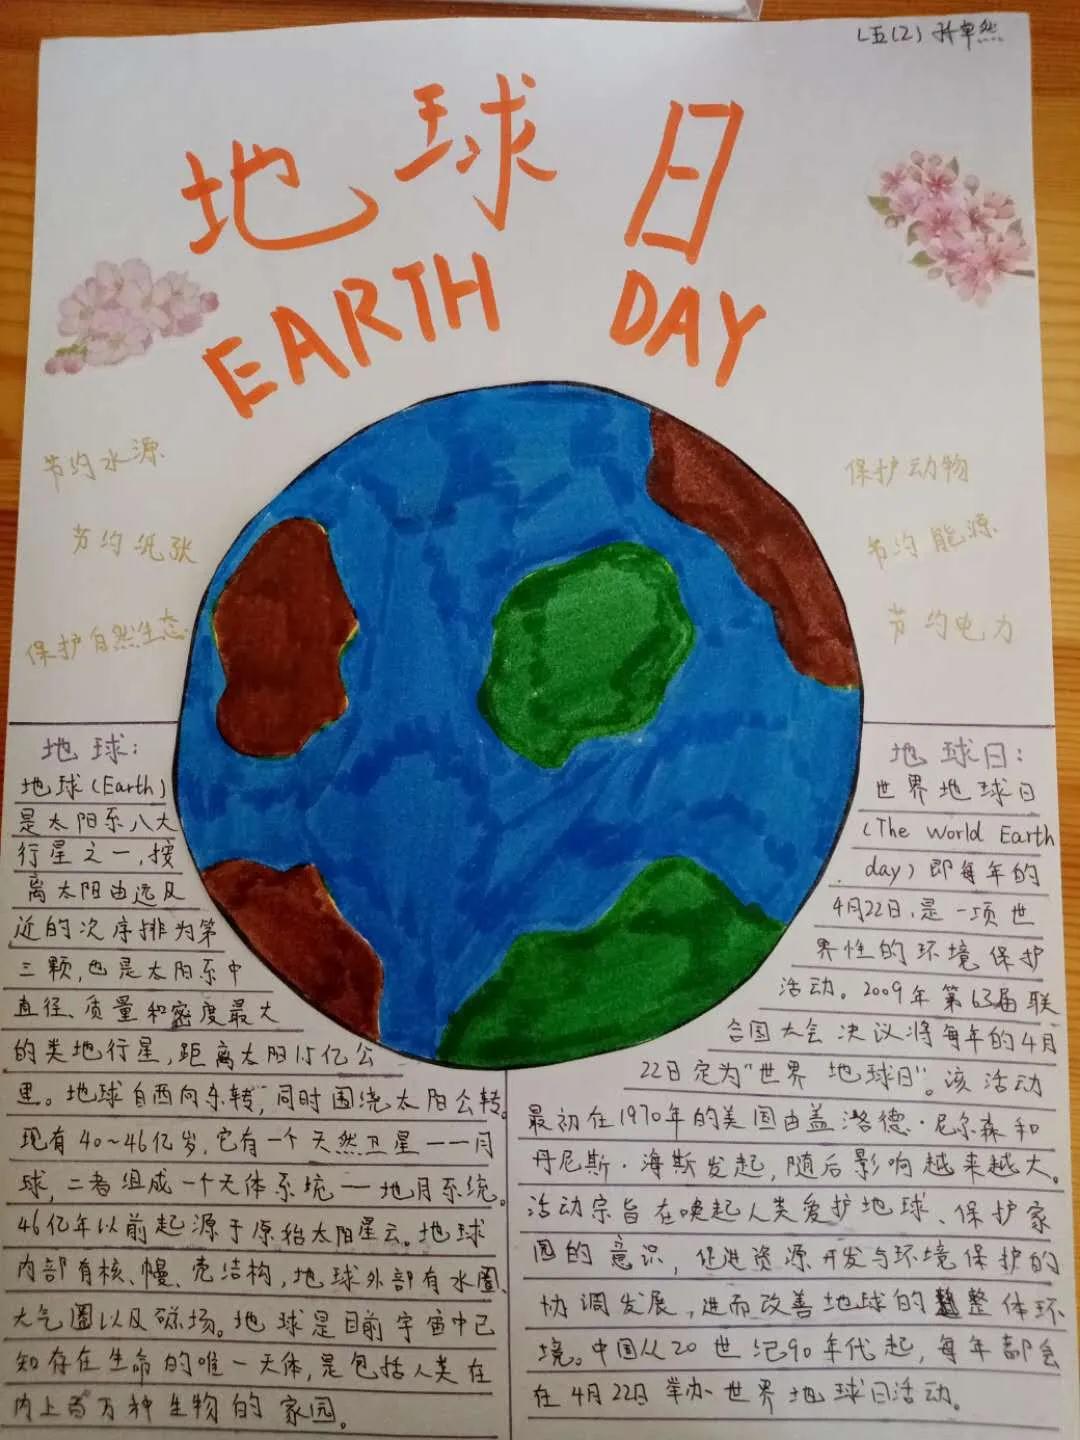 五(2)
地球日
EARTH DAY
节约水源
节约纸张
保护自然生态
保护动物
节约能源
节约电力
地球:
地球(Earth)
是太阳系八大
行星之一,按
离太阳由远及
近的次序排为第
三颗,也是太阳系中
直径、质量和密度最大
的类地行星,距离太阳1.5亿公
里。地球自西向东转,同时围绕太阳公转。
现有40~46亿岁,它有一个天然卫星——月
球,二者组成一个天体系统——地月系统。
46亿年以前起源于原始太阳星云。地球
内部有核、幔、壳结构,地球外部有水圈、
大气圈以及磁场。地球是目前宇宙中已
知存在生命的唯一天体,是包括人类在
内上百万种生物的家园。
地球日:
世界地球日
(The world Earth
day)即每年的
4月22日,是一项世
界性的环境保护
活动。2009年第63届联
合国大会决议将每年的4月
22日定为"世界地球日"。该活动
最初在1970年的美国由盖洛德·尼尔森和
丹尼斯·海斯发起,随后影响越来越大。
活动宗旨在唤起人类爱护地球、保护家
园的意识,促进资源开发与环境保护的
协调发展,进而改善地球的整体环
境。中国从20世纪90年代起,每年都会
在4月22日举办世界地球日活动。